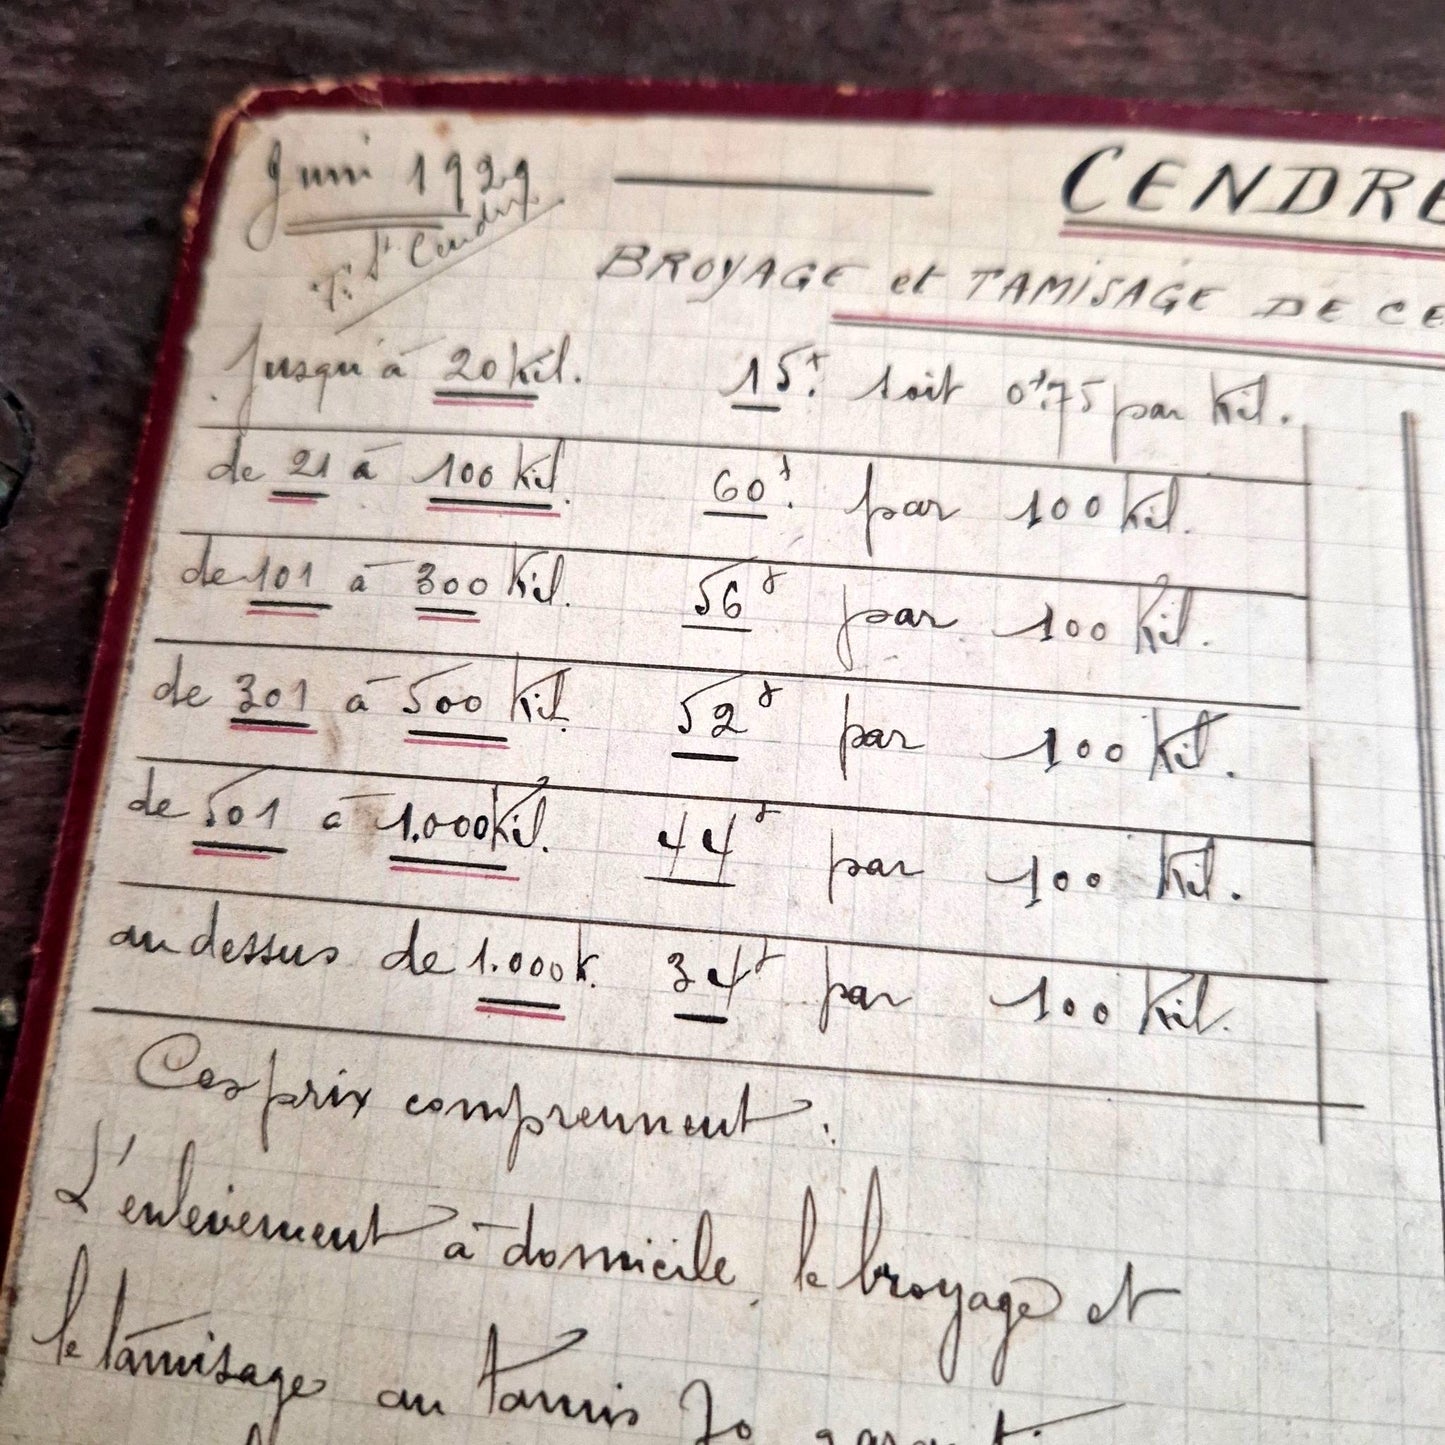 Juin 1929
CENDRE
BROYAGE et TAMISAGE DE CE
Jusqu'à 20 Kil. 15f. soit 0f.75 par Kil.
de 21 à 100 Kil. 60f. par 100 Kil.
de 101 à 300 Kil. 56f par 100 Kil.
de 301 à 500 Kil. 52f par 100 Kil.
de 501 à 1.000 Kil. 44f par 100 Kil.
au dessus de 1.000 k. 34f par 100 Kil.
Ces prix comprennent :
L'enlèvement à domicile, le broyage et
le tamisage au tamis 70